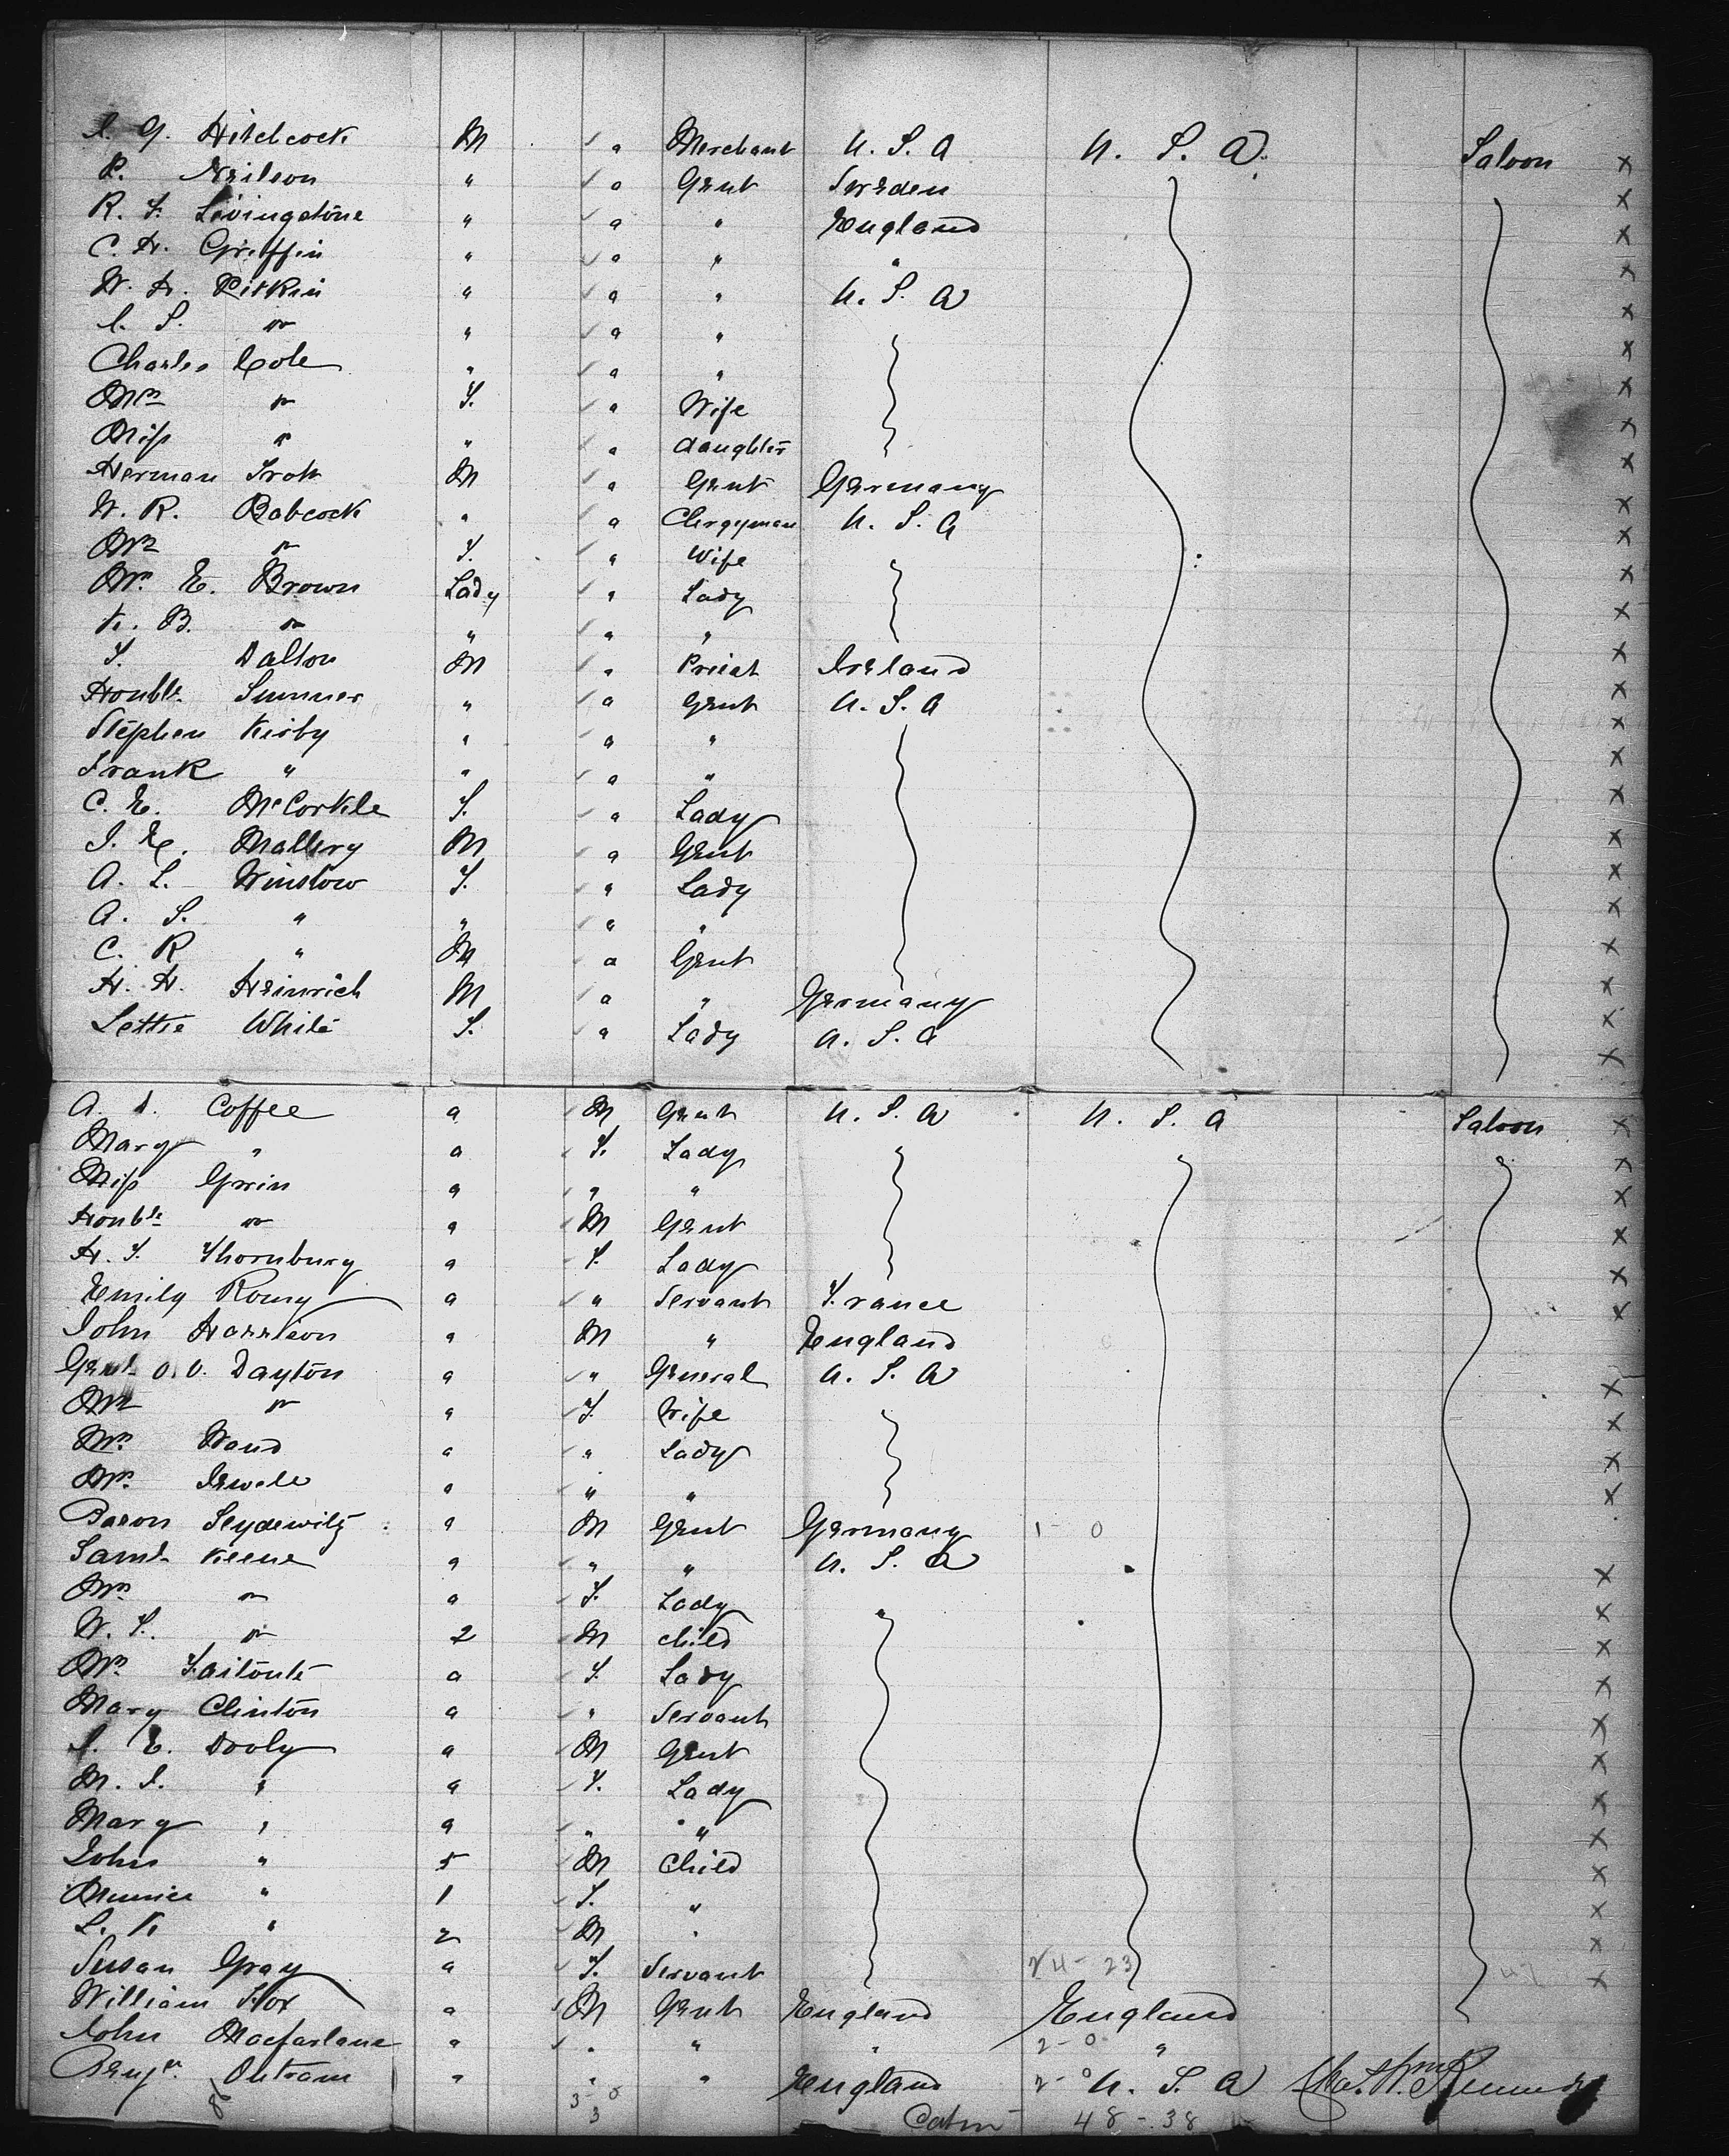 G. Hitchcock M " a Merchant U. S. A U. S. A. Saloon x
R. Neilson " a Gent Sweden x
R. F. Livingstone " a " England x
C. H. Griffin " a " " x
W. H. Pitkin " a " U. S. A x
S. do " a " x
Charles Cole " a " x
Mrs do F. a Wife x
Miss do " a daughter x
Herman Trott M a Gent Germany x
W. R. Babcock " a Clergyman U. S. A x
Mrs do F. " Wife x
Mrs. E. Brown Lady " Lady x
K. B. do " a " x
F. Dalton M " Priest Ireland x
Honble. Sumner " a Gent U. S. A x
Stephen Kirby " a " x
Frank " " a " x
C. E. McCorkle F. a Lady x
J. E. Mallery M a Gent x
A. L. Winslow F. " Lady x
A. S. " " a " x
C. R " M a Gent x
H. H. Heinrich M a " Germany x
Lettie White F. a Lady U. S. A x
A. Coffee a M Gent U. S. A U. S. A Saloon x
Mary " a F. Lady x
Miss Gwin a " " x
Honble do a M Gent x
H. F. Thornburg a F. Lady x
Emily Romy a " Servant France x
John Harrison a M " England
Genl. O. V. Dayton a " General U. S. A x
Mrs do a F. Wife x
Mrs. Wand a " Lady x
Mrs. Jewell a " " x
Baron Seydewitz a M Gent Germany 1 - 0
Saml. Keene a " " U. S. A x
Mrs. do a F. Lady x
W. S. do 2 M child x
Mrs. Faitoute a F Lady x
Mary Clinton a " Servant x
E. Dooly a M Gent x
M. J. " a F. Lady x
Mary " a " " x
John " 5 M Child x
Munnie " 1 F. " x
L. K " 2 M " x
Susan Gray a F. Servant 24 - 23 x
William Fox a M Gent England England
John Macfarlane a " " " 2 - 0 "
Benjn. Outram " " " England 2 - 0 U. S. A Chas. Wm. Kennedy
3 - 0
3 48 - 38